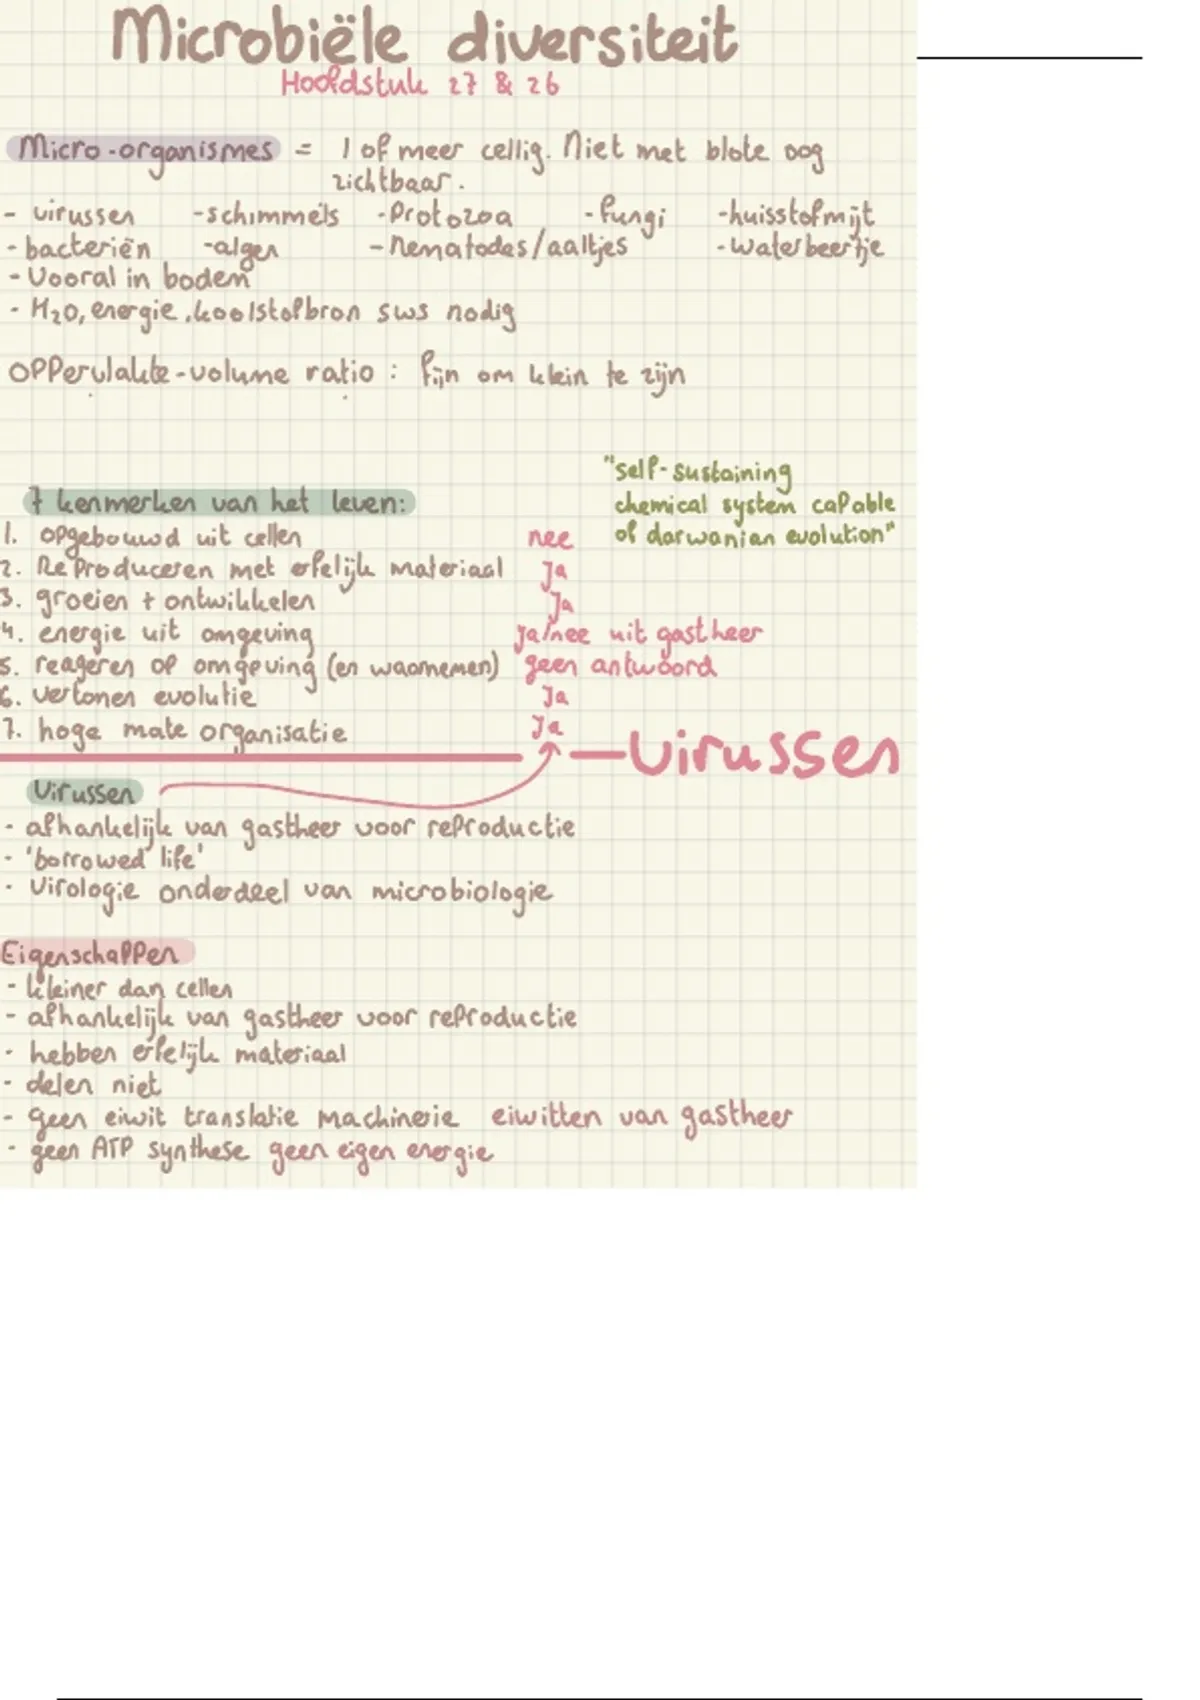 Microbiële diversiteit
Hoofdstuk 27 & 26
Micro-organismes = 1 of meer cellig. Niet met blote oog
zichtbaar.
- virussen -schimmels -Protozoa -fungi -huisstofmijt
- bacteriën -algen -nematodes/aaltjes -waterbeertje
- Vooral in bodem
- H2O, energie, koolstofbron sws nodig
oppervlakte-volume ratio: fijn om klein te zijn
"self-sustaining
chemical system capable
of darwanian evolution"
7 kenmerken van het leven:
1. opgebouwd uit cellen nee
2. Reproduceren met erfelijk materiaal Ja
3. groeien + ontwikkelen Ja
4. energie uit omgeving Ja/nee uit gastheer
5. reageren op omgeving (en waarnemen) geen antwoord
6. vertonen evolutie Ja
7. hoge mate organisatie Ja
—virussen
Virussen
- afhankelijk van gastheer voor reproductie
- 'borrowed life'
- Virologie onderdeel van microbiologie
Eigenschappen
- kleiner dan cellen
- afhankelijk van gastheer voor reproductie
- hebben erfelijk materiaal
- delen niet
- geen eiwit translatie machinerie eiwitten van gastheer
- geen ATP synthese geen eigen energie